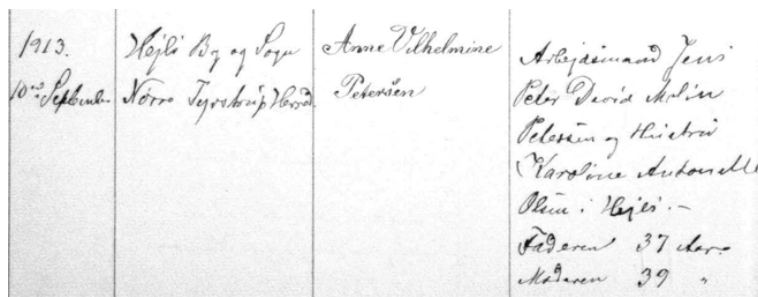 1913.
10de September
Hejls By og Sogn
Nørre Tyrstrup Herred.
Anne Vilhelmine
Petersen
Arbejdsmand Jens
Peter David Malin
Petersen og Hustru
Karoline Antonette
Olsen i Hejls.-
Faderen 37 Aar.
Moderen 39 "